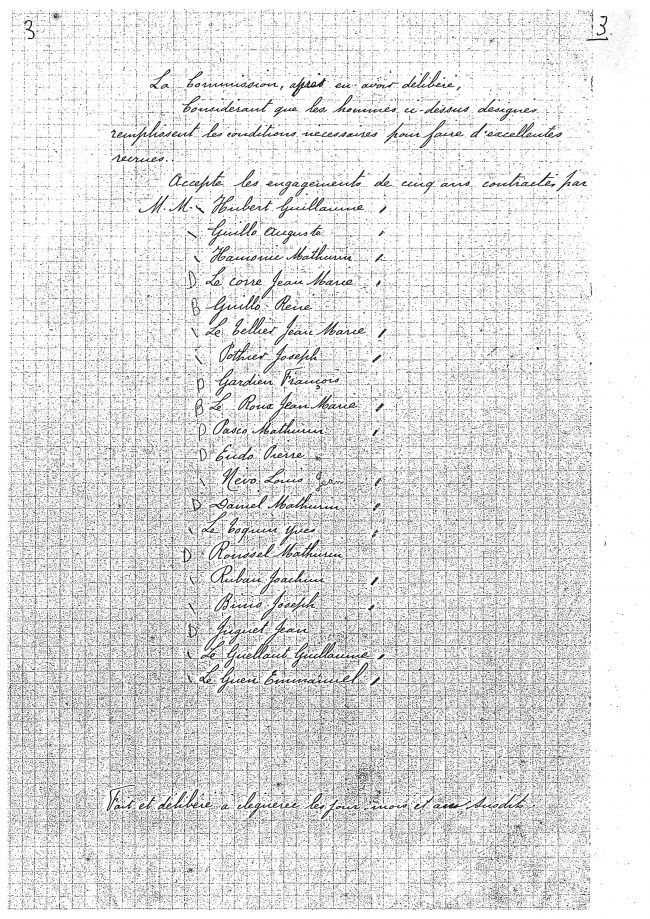 3
3
La Commission, après en avoir délibéré,
Considérant que les hommes ci-dessus désignés
remplissent les conditions nécessaires pour faire d'excellentes
recrues.
Accepte les engagements de cinq ans contractés par
M.M. Hubert Guillaume
Guillo Auguste
Hamonic Mathurin
D Le Corre Jean Marie
B Guillo René
Le Tellier Jean Marie
Pothier Joseph
D Gardien François
B Le Roux Jean Marie
D Pasco Mathurin
D Eudo Pierre
Névo Louis Jean
D Daniel Mathurin
Le Toquin Yves
D Roussel Mathurin
Ruban Joachim
Binio Joseph
D Juguet Jean
Le Guellaut Guillaume
Le Guen Emmanuel
Fait et délibéré à cléguérec les jour mois et an susdits.